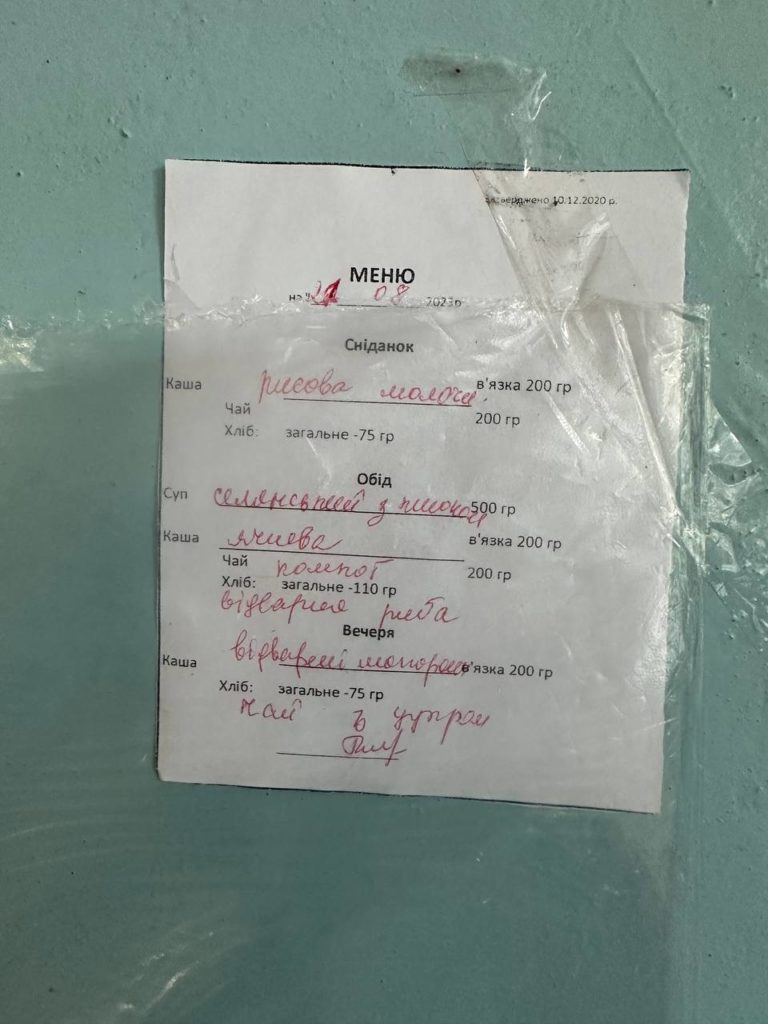 затверджено 10.12.2020 р.
МЕНЮ
на "21 08 2023р
Сніданок
Каша рисова молочн. в'язка 200 гр
Чай 200 гр
Хліб: загальне -75 гр
Обід
Суп селянський з пшоном 500 гр
Каша ячнева в'язка 200 гр
Чай компот 200 гр
Хліб: загальне -110 гр
відварная риба
Вечеря
Каша відварені макарони в'язка 200 гр
Хліб: загальне -75 гр
чай з цукром